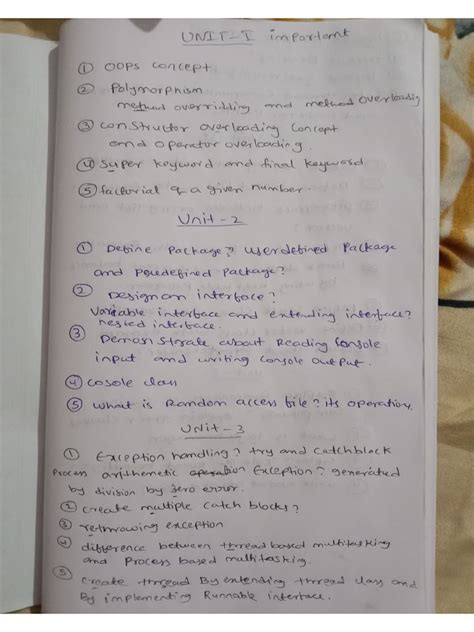 UNIT-I important
① OOPS concept
② Polymorphism
method overridding and method overloadig
③ constructor overloading concept
and operator overloading.
④ Super keyword and final keyword
⑤ factorial of a given number.
Unit-2
① Define Package? userdefined Package
and Predefined Package?
② Design an interface?
Variable interface and extending interface?
nested interface.
③ Demonstrate about Reading Console
input and writing console output.
④ cosole class
⑤ what is Random access file? its operation.
UNit-3
① Exception handling? try and catch block
Process arithmetic operation Exception? generated
by division by zero error.
② create multiple catch blocks?
③ rethrowing exception
④ difference between thread based multitasking
and Process based multitasking.
⑤ create thread By extending thread class and
By implementing Runnable interface.